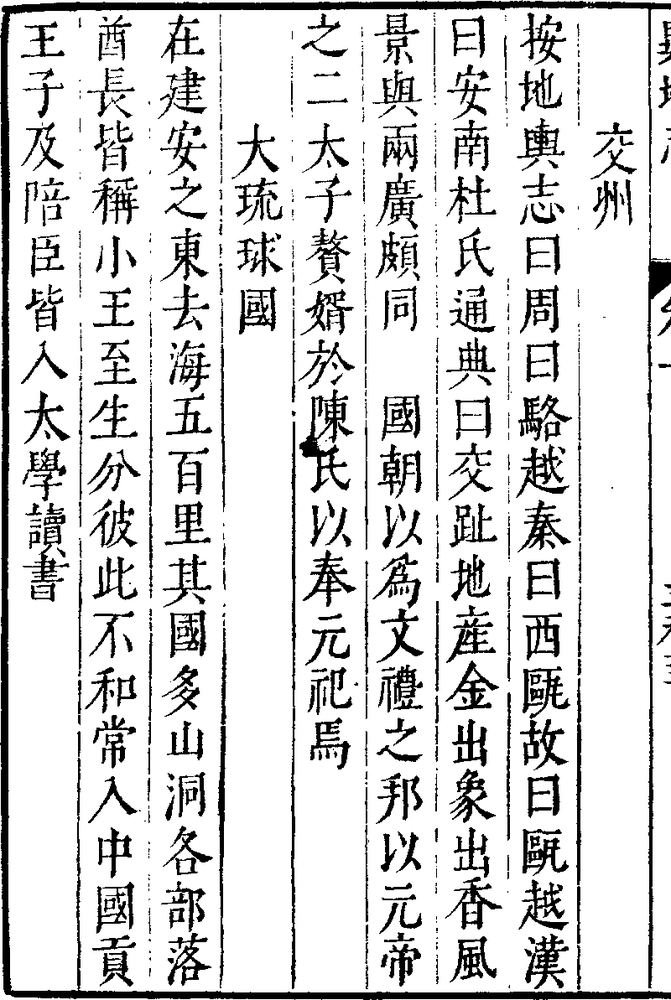 交州
按地輿志曰周曰駱越秦曰西甌故曰甌越漢
曰安南杜氏通典曰交趾地産金出象出香風
景與兩廣頗同　國朝以爲文禮之邦以元帝
之二太子贅婿於陳氏以奉元祀焉
大琉球國
在建安之東去海五百里其國多山洞各部落
酋長皆稱小王至生分彼此不和常入中國貢
王子及陪臣皆入太學讀書